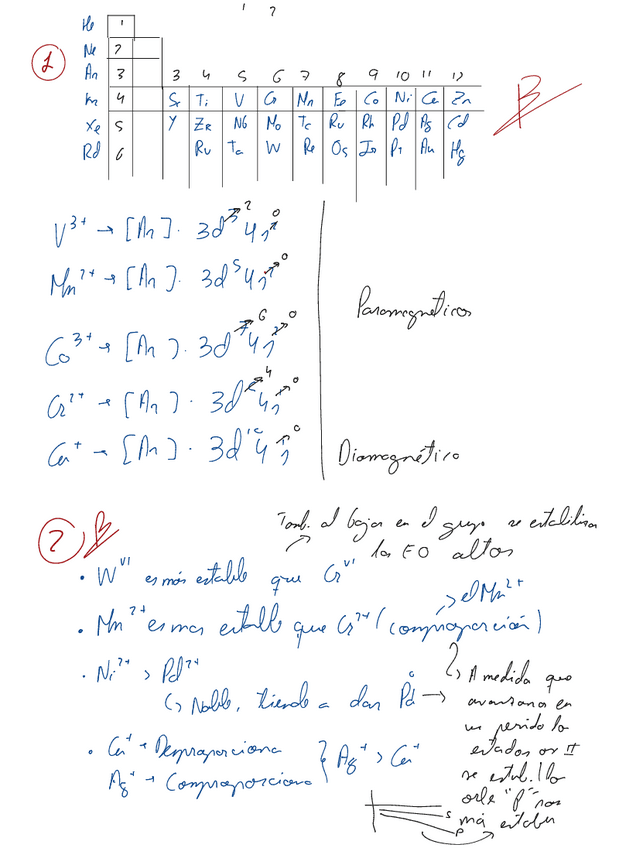 1 2
1
He 1
Ne 2
Ar 3 3 4 5 6 7 8 9 10 11 12
Kr 4 Sc Ti V Cr Mn Fe Co Ni Cu Zn
Xe 5 Y Zr Nb Mo Tc Ru Rh Pd Ag Cd
Rd 6 Ru Ta W Re Os Ir Pt Au Hg
B
V³⁺ → [Ar] · 3d³ ² 4s² ⁰
Mn²⁺ → [Ar] · 3d⁵ 4s² ⁰
Paramagnéticos
Co³⁺ → [Ar] · 3d⁷ ⁶ 4s² ⁰
Cr²⁺ → [Ar] · 3d⁵ ⁴ 4s¹ ⁰
Cu⁺ → [Ar] · 3d¹⁰ 4s¹ ⁰
Diamagnético
2 B
Tamb. al bajar en el grupo se estabilizan
los EO altos
· W^VI es más estable que Cr^VI
el Mn²⁺
· Mn²⁺ es mas estable que Cr²⁺ (comproporción)
· Ni²⁺ > Pd²⁺
↳ Noble, tiende a dar Pd⁰ →
A medida que
avanzana en
un periodo lo
estados ox II
se estabil. 
orb "p" 
más estables
s
p
· Cu⁺ → Desproporciona
Ag⁺ → Comproporciona } Ag⁺ > Cu⁺